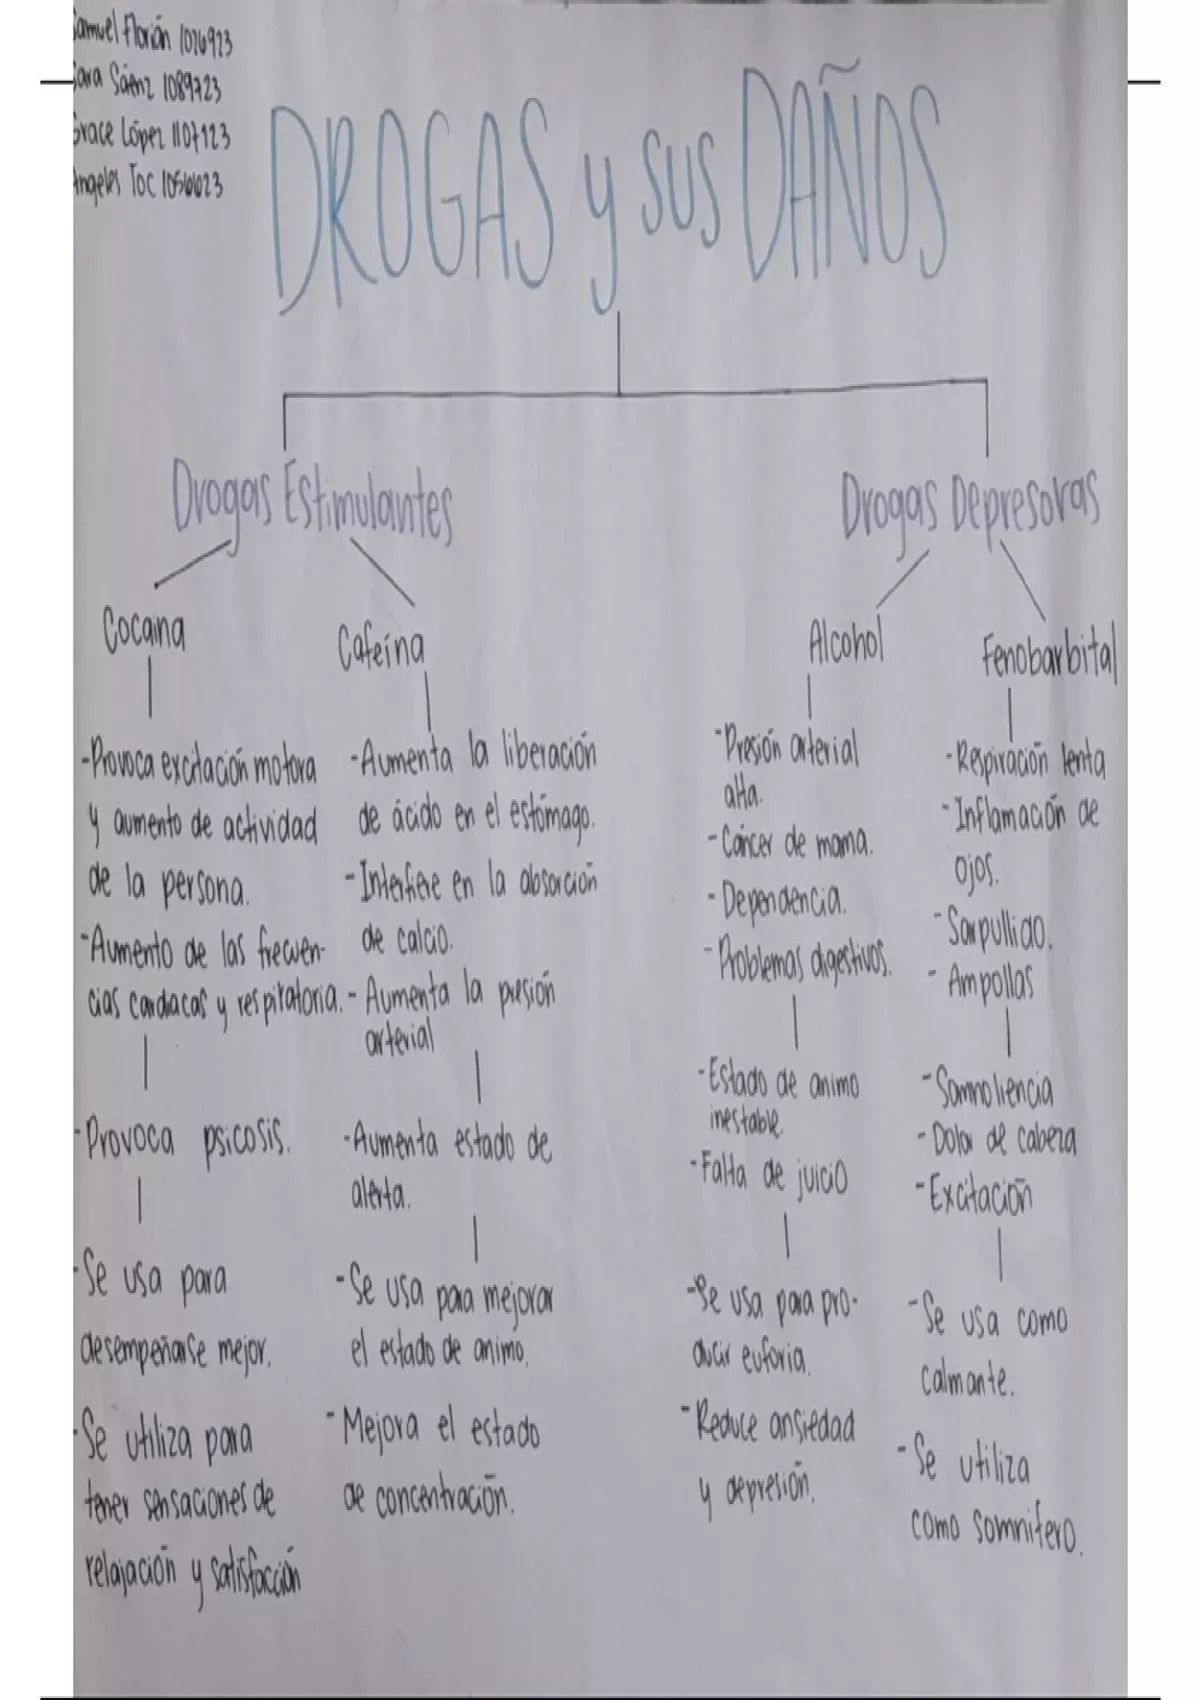 Samuel Florián 1026923
Sara Sáenz 1089723
Grace López 1107123
Angeles Toc 1056023
DROGAS y sus DAÑOS
Drogas Estimulantes
Cocaina
-Provoca excitación motora
y aumento de actividad
de la persona.
-Aumento de las frecuen-
cias cardiacas y respiratoria.
-Provoca psicosis.
-Se usa para
desempeñarse mejor.
-Se utiliza para
tener sensaciones de
relajación y satisfacción
Cafeína
-Aumenta la liberación
de ácido en el estómago.
-Interfiere en la absorción
de calcio.
-Aumenta la presión
arterial
-Aumenta estado de
alerta.
-Se usa para mejorar
el estado de animo.
-Mejora el estado
de concentración.
Drogas Depresoras
Alcohol
-Presión arterial
alta.
-Cáncer de mama.
-Dependencia.
-Problemas digestivos.
-Estado de animo
inestable.
-Falta de juicio
-Se usa para pro-
ducir euforia.
-Reduce ansiedad
y depresión.
Fenobarbital
-Respiración lenta
-Inflamación de
ojos.
-Sarpullido.
-Ampollas
-Somnoliencia
-Dolor de cabeza
-Excitación
-Se usa como
calmante.
-Se utiliza
como somnifero.